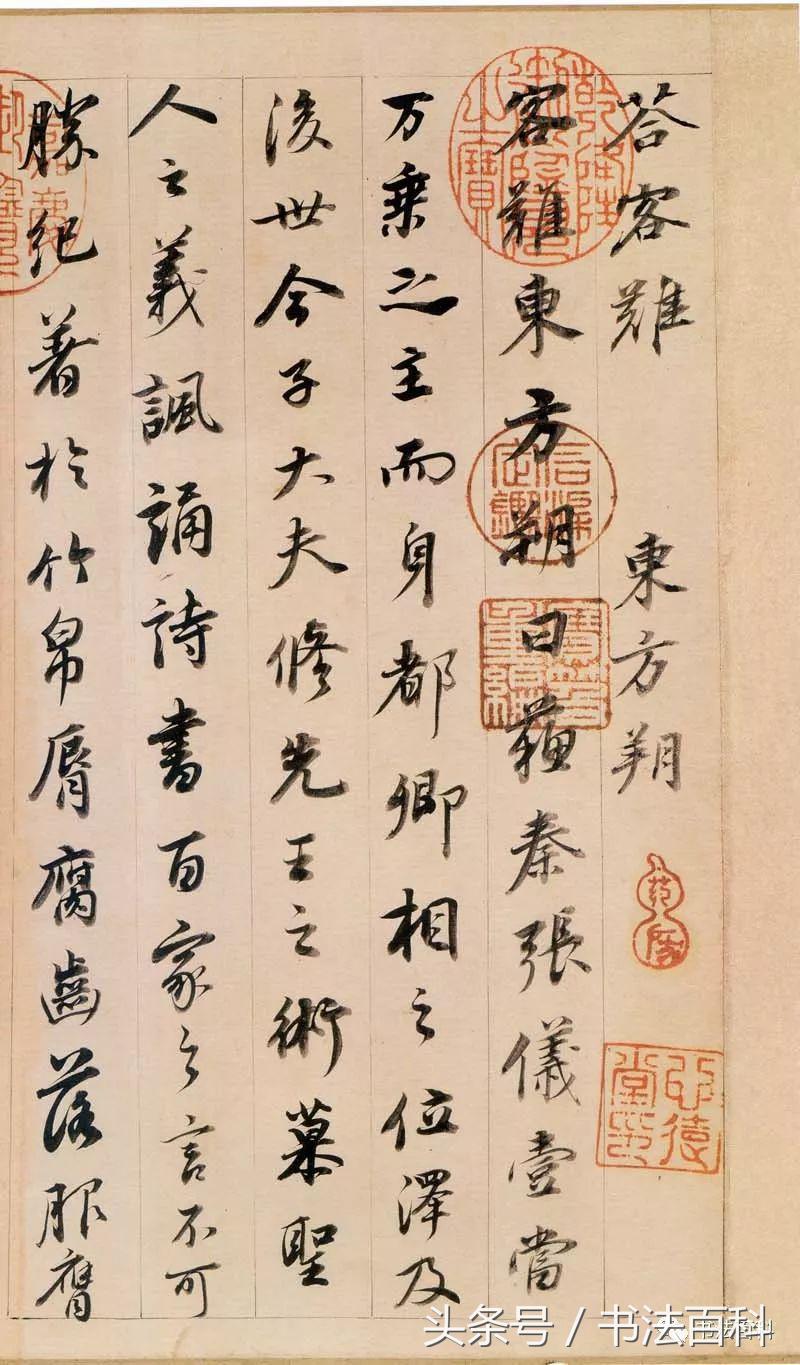 荅客難 東方朔
客難東方朔曰蘇秦張儀壹當
万乘之主而身都卿相之位澤及
後世今子大夫修先王之術慕聖
人之義諷誦詩書百家之言不可
勝紀著於竹帛脣腐齒落服膺
頭条号 / 书法百科
书法百科